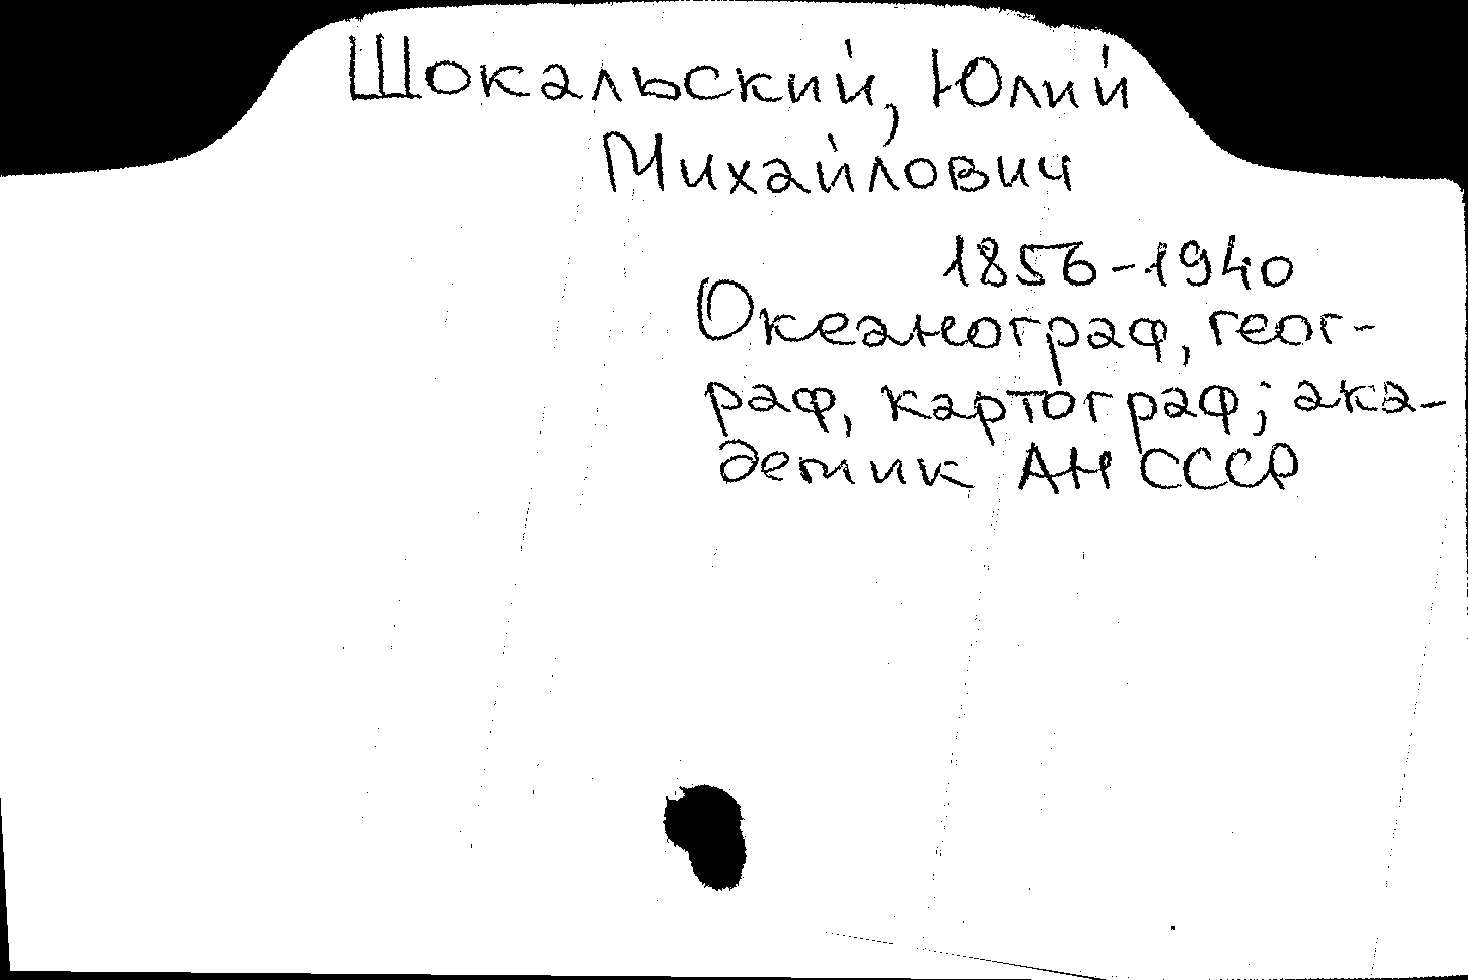 Шокальский, Юлий
Михайлович
1856-1940
Океанограф, геог-
раф, картограф; ака-
демик АН СССР